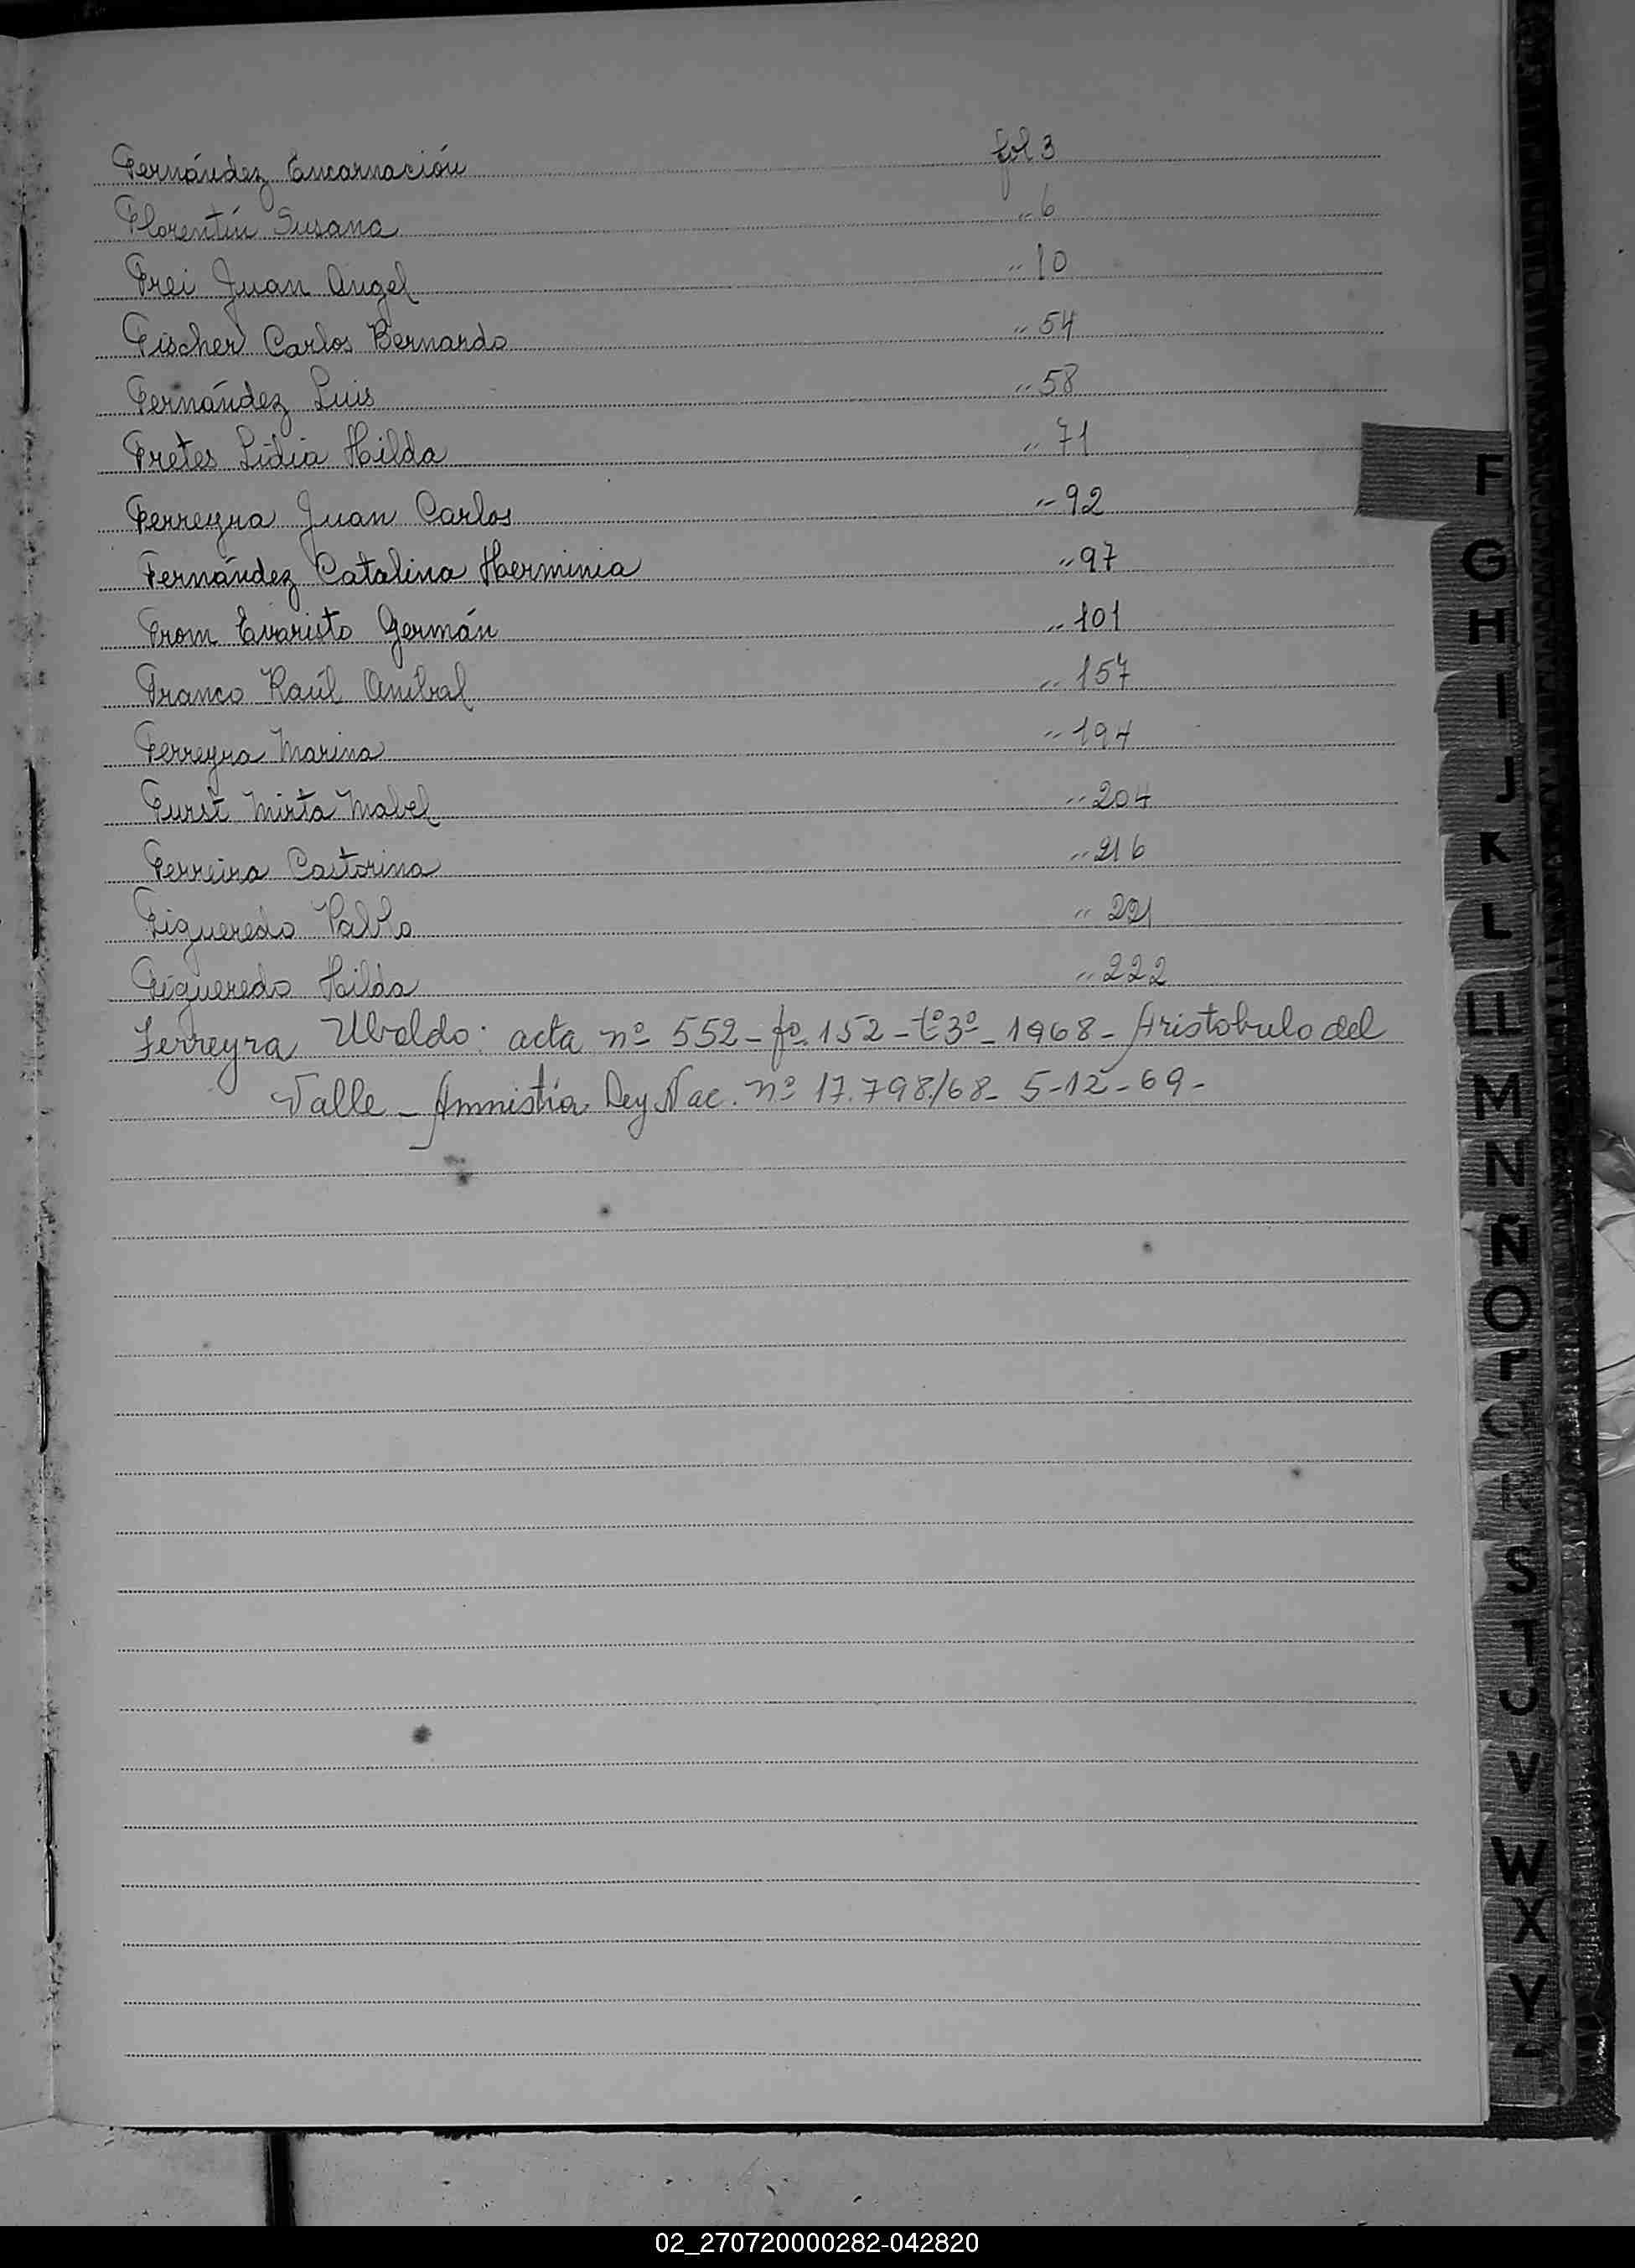 Fernández Encarnación fol 3
Florentín Susana " 6
Frei Juan Angel " 10
Fischer Carlos Bernardo " 54
Fernández Luis " 58
Fretes Lidia Hilda " 71
Ferreyra Juan Carlos " 92
Fernández Catalina Herminia " 97
From Evaristo Germán " 101
Franco Raúl Anibal " 157
Ferreyra Marina " 194
Furst Mirta Mabel " 204
Ferreira Castorina " 216
Figueredo Pablo " 221
Figueredo Hilda " 222
Ferreyra Ubaldo: acta nº 552 - fº 152 - tº 3º - 1968 - Aristobulo del
Valle - Amnistía Ley Nac. nº 17.798/68 - 5-12-69 -
F
G
H
I
J
K
L
LL
M
N
Ñ
O
P
Q
R
S
T
U
V
W
X
Y
02_270720000282-042820